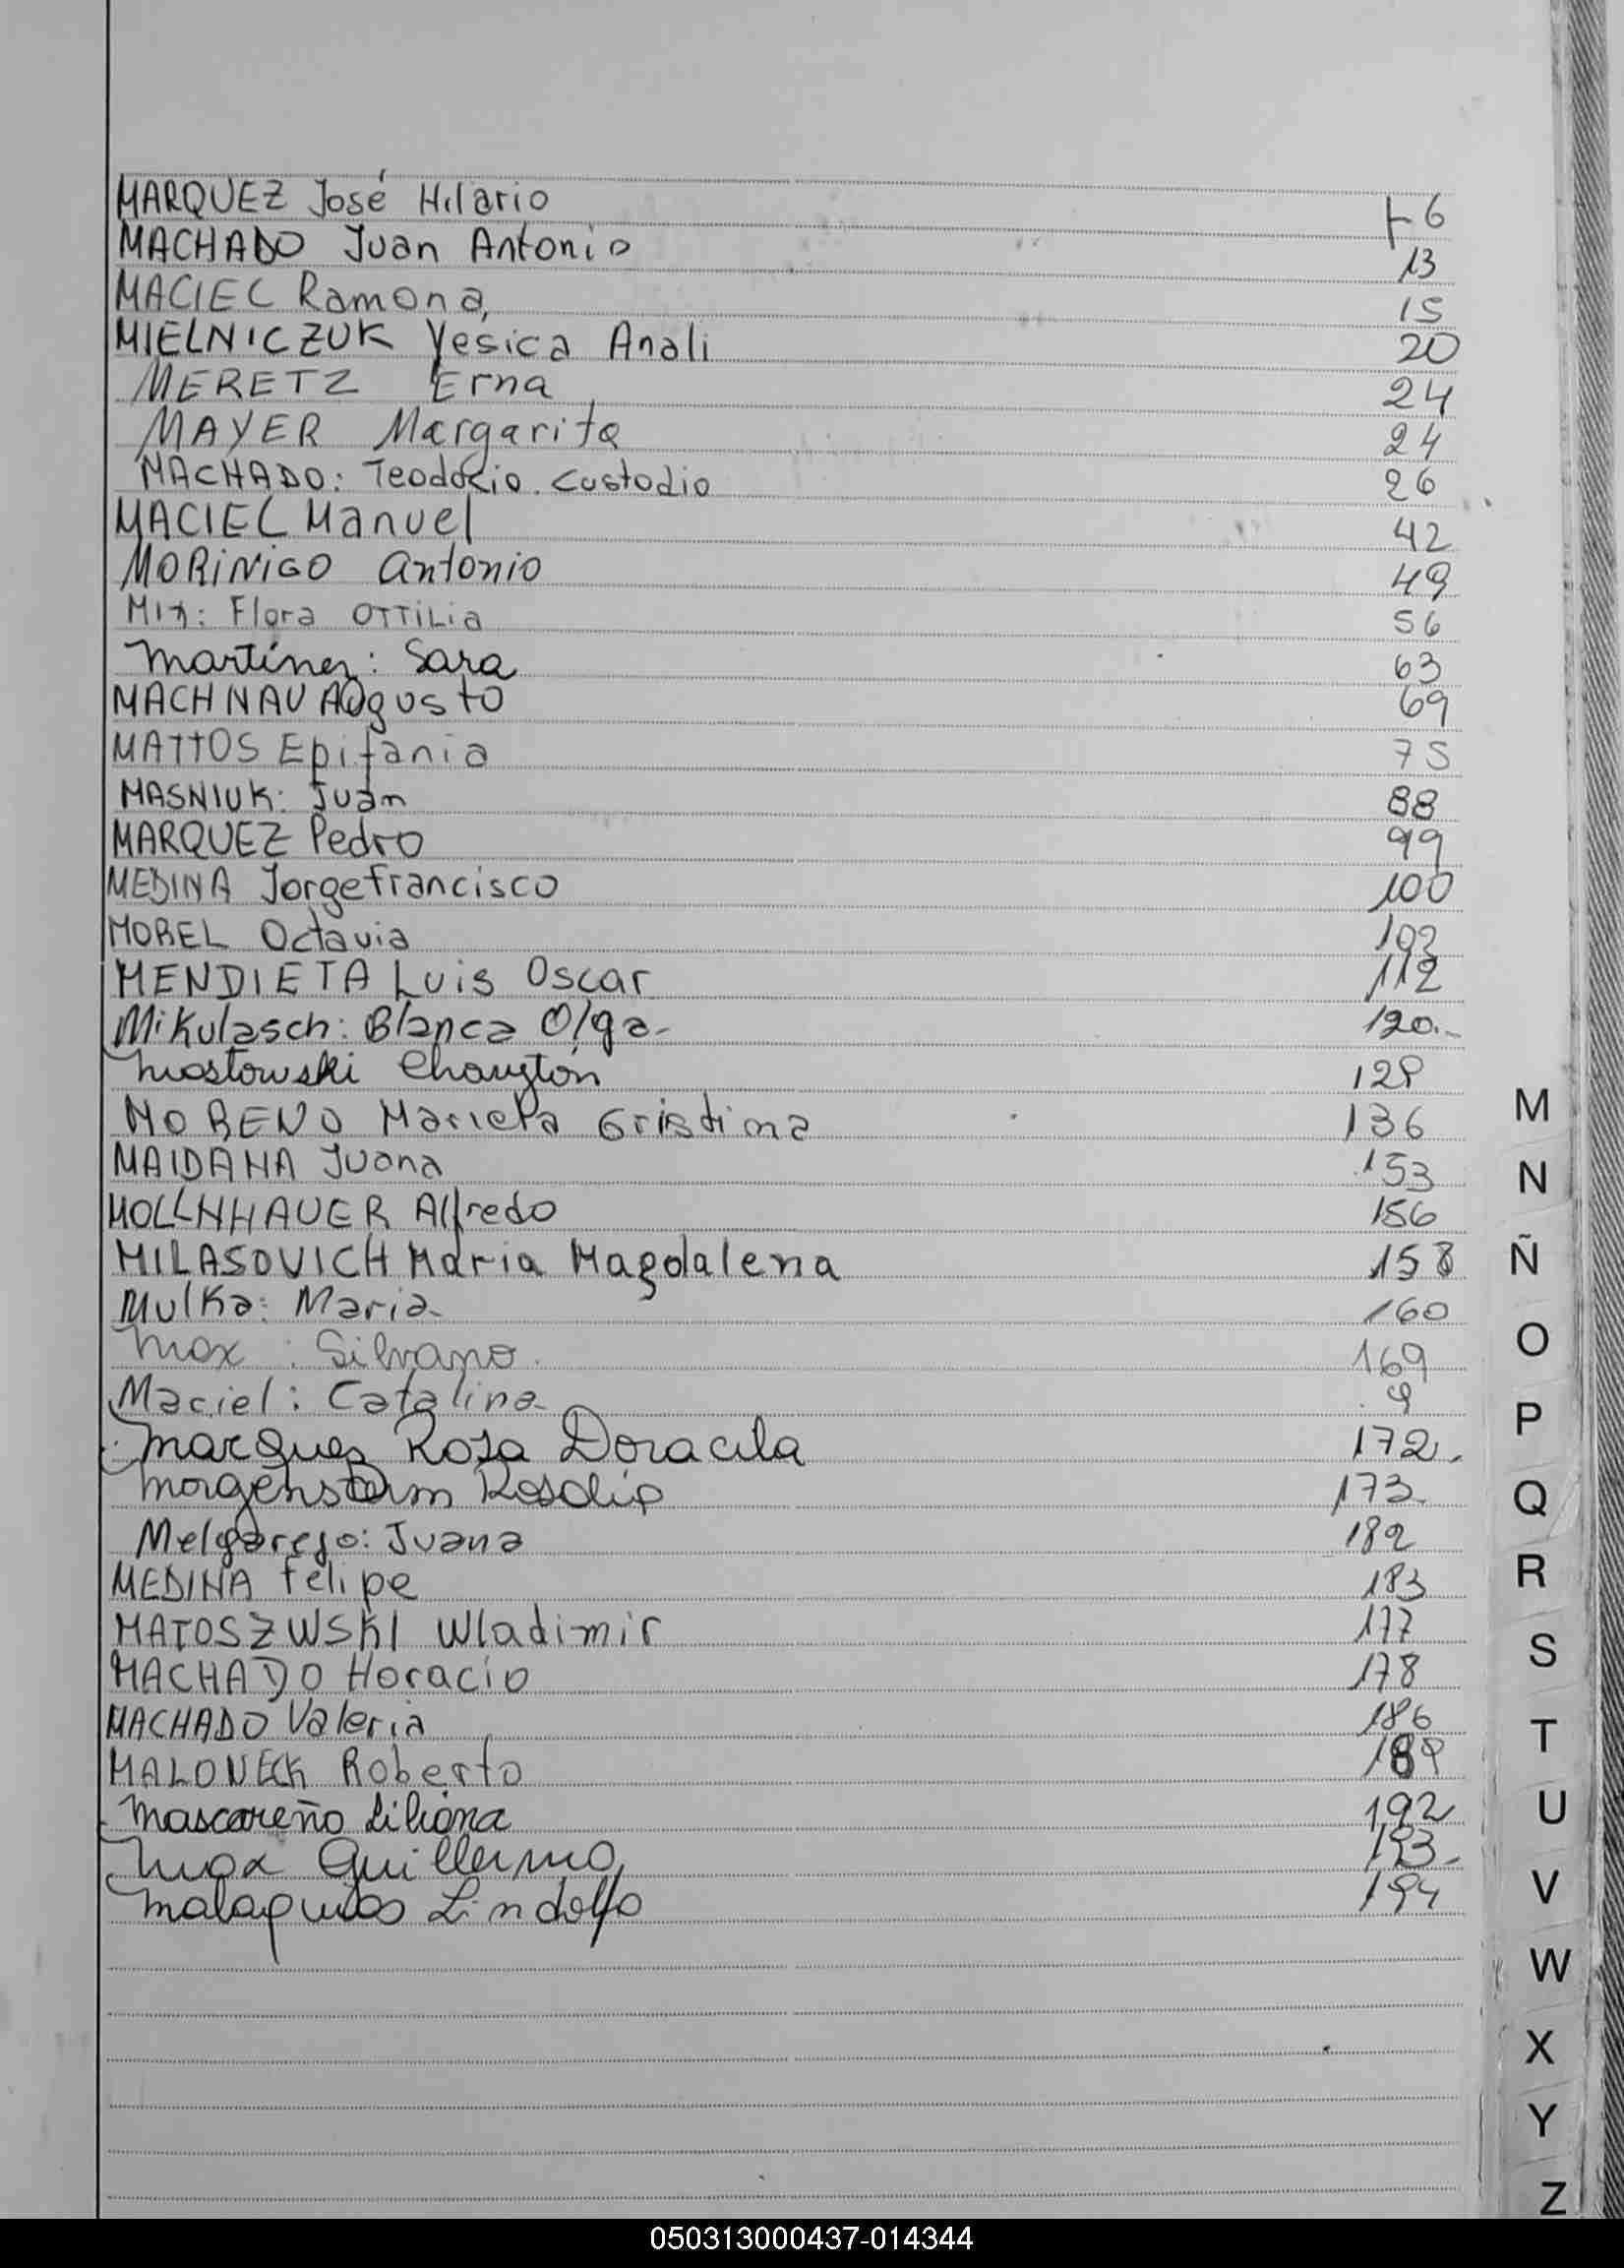 MARQUEZ José Hilario F 6
MACHADO Juan Antonio 13
MACIEL Ramona, 15
MIELNICZUK Yesica Anali 20
MERETZ Erna 24
MAYER Margarita 24
MACHADO: Teodocio. Custodio 26
MACIEL Manuel 42
MORINIGO Antonio 49
Mix: Flora OTTILIA 56
Martínez: Sara 63
MACHNAU Augusto 69
MATTOS Epifania 75
MASNIUK: Juan 88
MARQUEZ Pedro 99
MEDINA Jorge francisco 100
MOREL Octavia 102
MENDIETA Luis Oscar 112
Mikulasch: Blanca Olga- 120.-
Mostowski 128
MORENO Mariela Cristina 136
MAIDANA Juana 153
MOLLNHAUER Alfredo 156
MILASOVICH Maria Magdalena 158
Mulka: Maria- 160
Max : Silvano. 169
Maciel: Catalina- 9
Marquez Rosa Doracila 172.
Morgenstern Rosalia 173.
Melgarejo: Juana 182
MEDINA felipe 183
MATOSZWSKI Wladimir 177
MACHADO Horacio 178
MACHADO Valeria 186
MALONECK Roberto 189
Mascareño Liliana 192
Max Guillermo, 193.
Malaquias Lindolfo 194
M
N
Ñ
O
P
Q
R
S
T
U
V
W
X
Y
Z
050313000437-014344